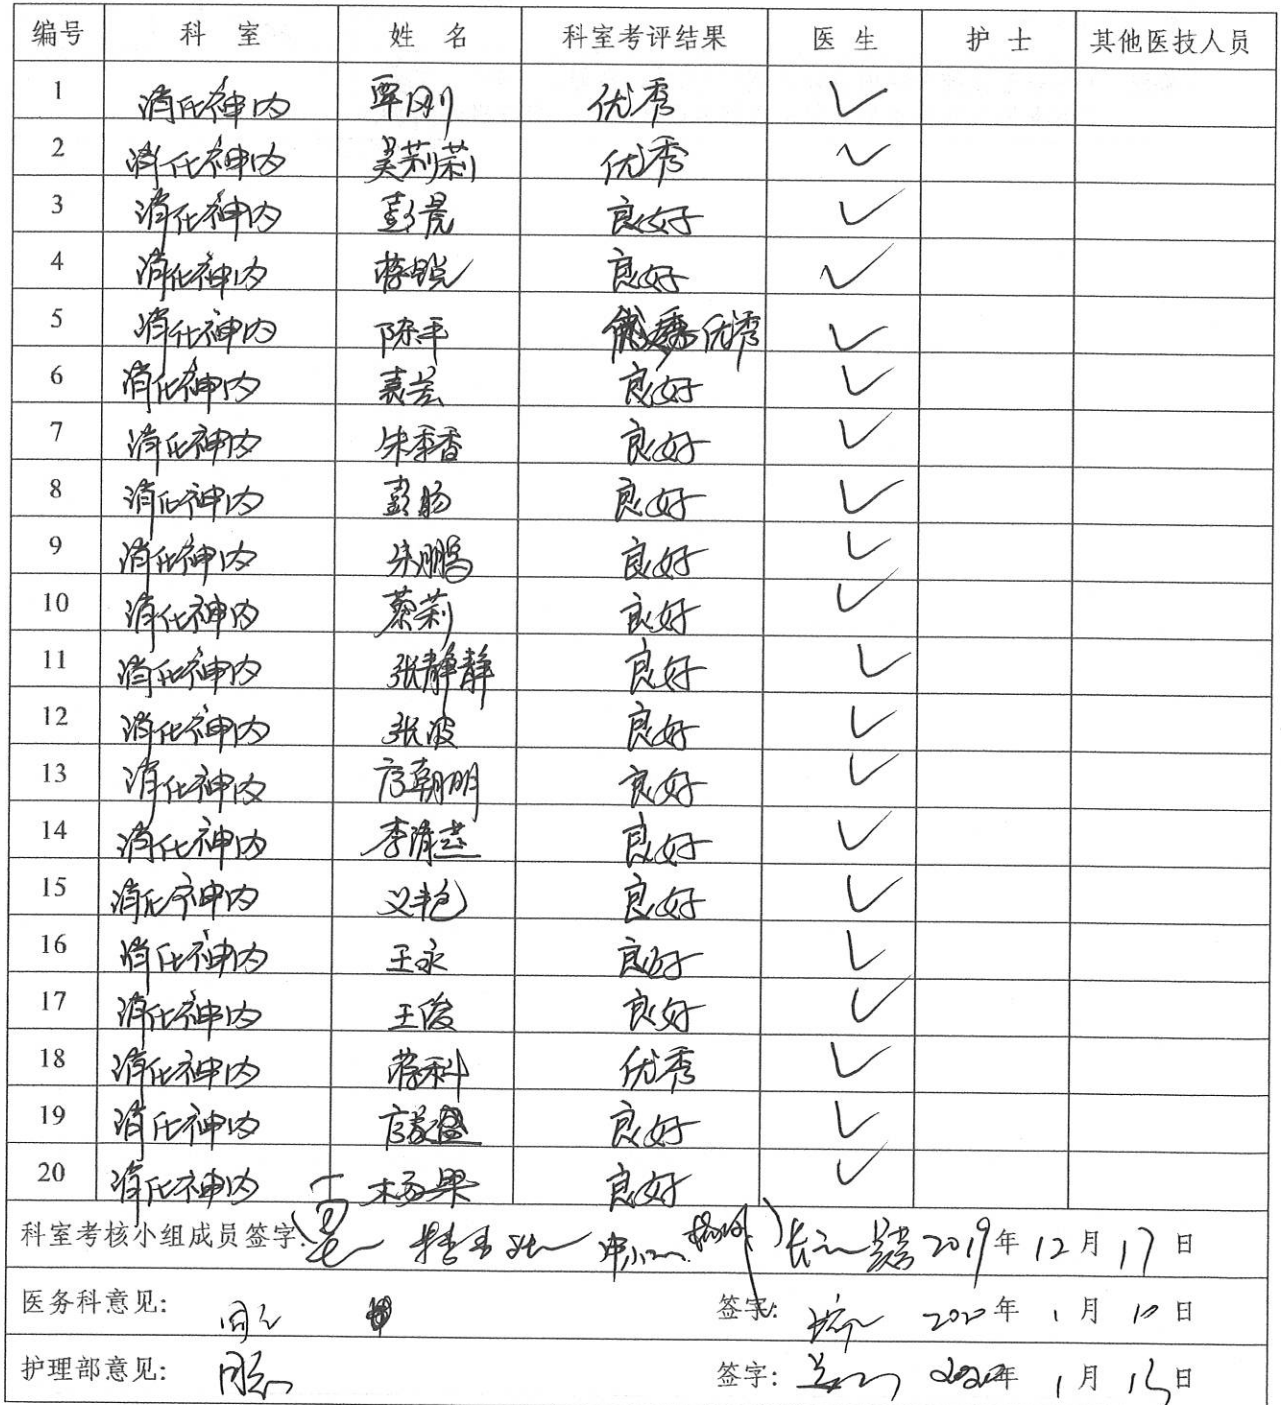 编号 科 室 姓 名 科室考评结果 医 生 护 士 其他医技人员
1 消化神内 覃刚 优秀 ✓
2 消化神内 吴莉莉 优秀 ✓
3 消化神内 彭亮 良好 ✓
4 消化神内 蒋锐 良好 ✓
5 消化神内 陈平 优秀 ✓
6 消化神内 袁芳 良好 ✓
7 消化神内 朱香 良好 ✓
8 消化神内 彭肠 良好 ✓
9 消化神内 朱鹏 良好 ✓
10 消化神内 蔡莉 良好 ✓
11 消化神内 张静静 良好 ✓
12 消化神内 张波 良好 ✓
13 消化神内 朝明 良好 ✓
14 消化神内 李清 良好 ✓
15 消化神内 良好 ✓
16 消化神内 王永 良好 ✓
17 消化神内 王俊 良好 ✓
18 消化神内 蒋科 优秀 ✓
19 消化神内 良好 ✓
20 消化神内 杨果 良好 ✓
科室考核小组成员签字: 2019年 12月 17日
医务科意见: 同意 签字: 2020年 1月 10日
护理部意见: 同意 签字: 2020年 1月 13日